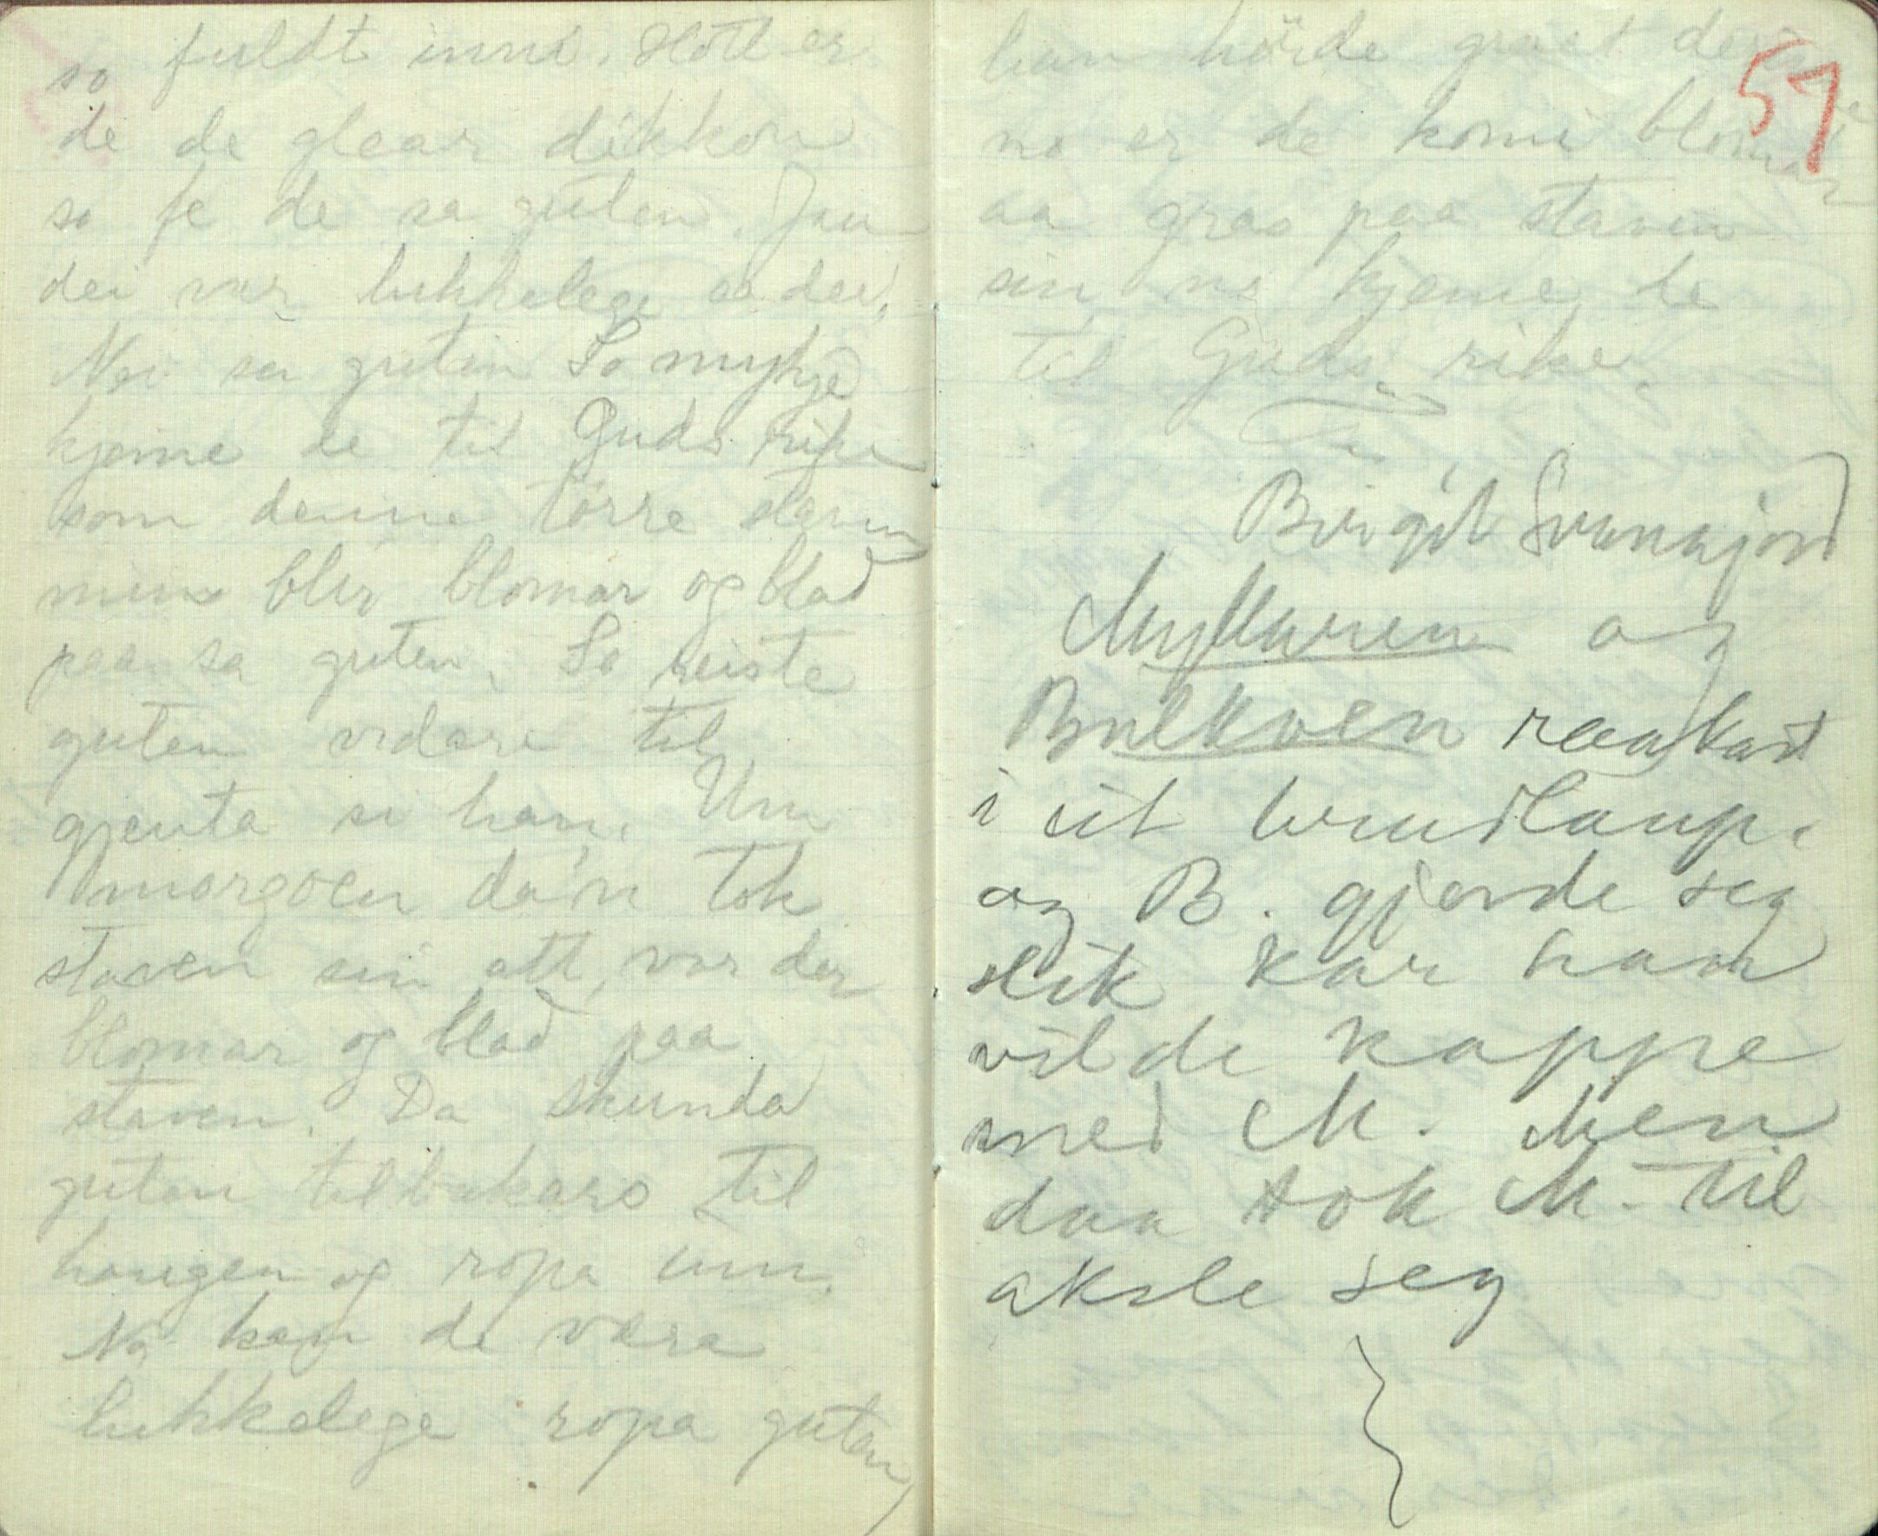 so fuldt inni. Hott er
de de glear dikkon
so fe de sa guten. Jau
dei var lukkelege aa dei,
Nei sa guten So mykje
kjeme de til Guds rike
som denne törre staven
min blir blomar og blad
paa sa guten. So reiste
guten vidare til
gjenta si han. Um
morgoen da'n tok
staven sin att, var der
blomar og blad paa
staven. Da skunda
guten tilbakars til
haugen og ropa inn.
No kan de være
lukkelege ropa guten,
han hörde graat der
51
no er de komi blomar
aa gras paa staven
sin, no kjeme de
til Guds rike.
Birgit Svanajord
Myllaren og
Bulkoen raakast
i eit brudlaup.
og B. gjorde seg
slik kar han
vilde kappe
med M. Men
daa tok M. til
aksle seg